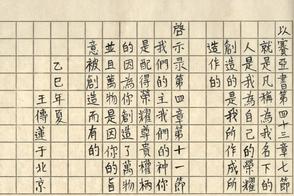 以賽亞書第四十三章七節
就是凡稱為我名下的
人是我為自己的榮耀
創造的是我所作成所
造作的
啓示錄第四章第十一節
我們的主我們的神你
是配得榮耀尊貴權柄
的因為你創造了萬物
並且萬物是因你的旨
意被創造而有的
乙巳年夏
王傳蓮于北京